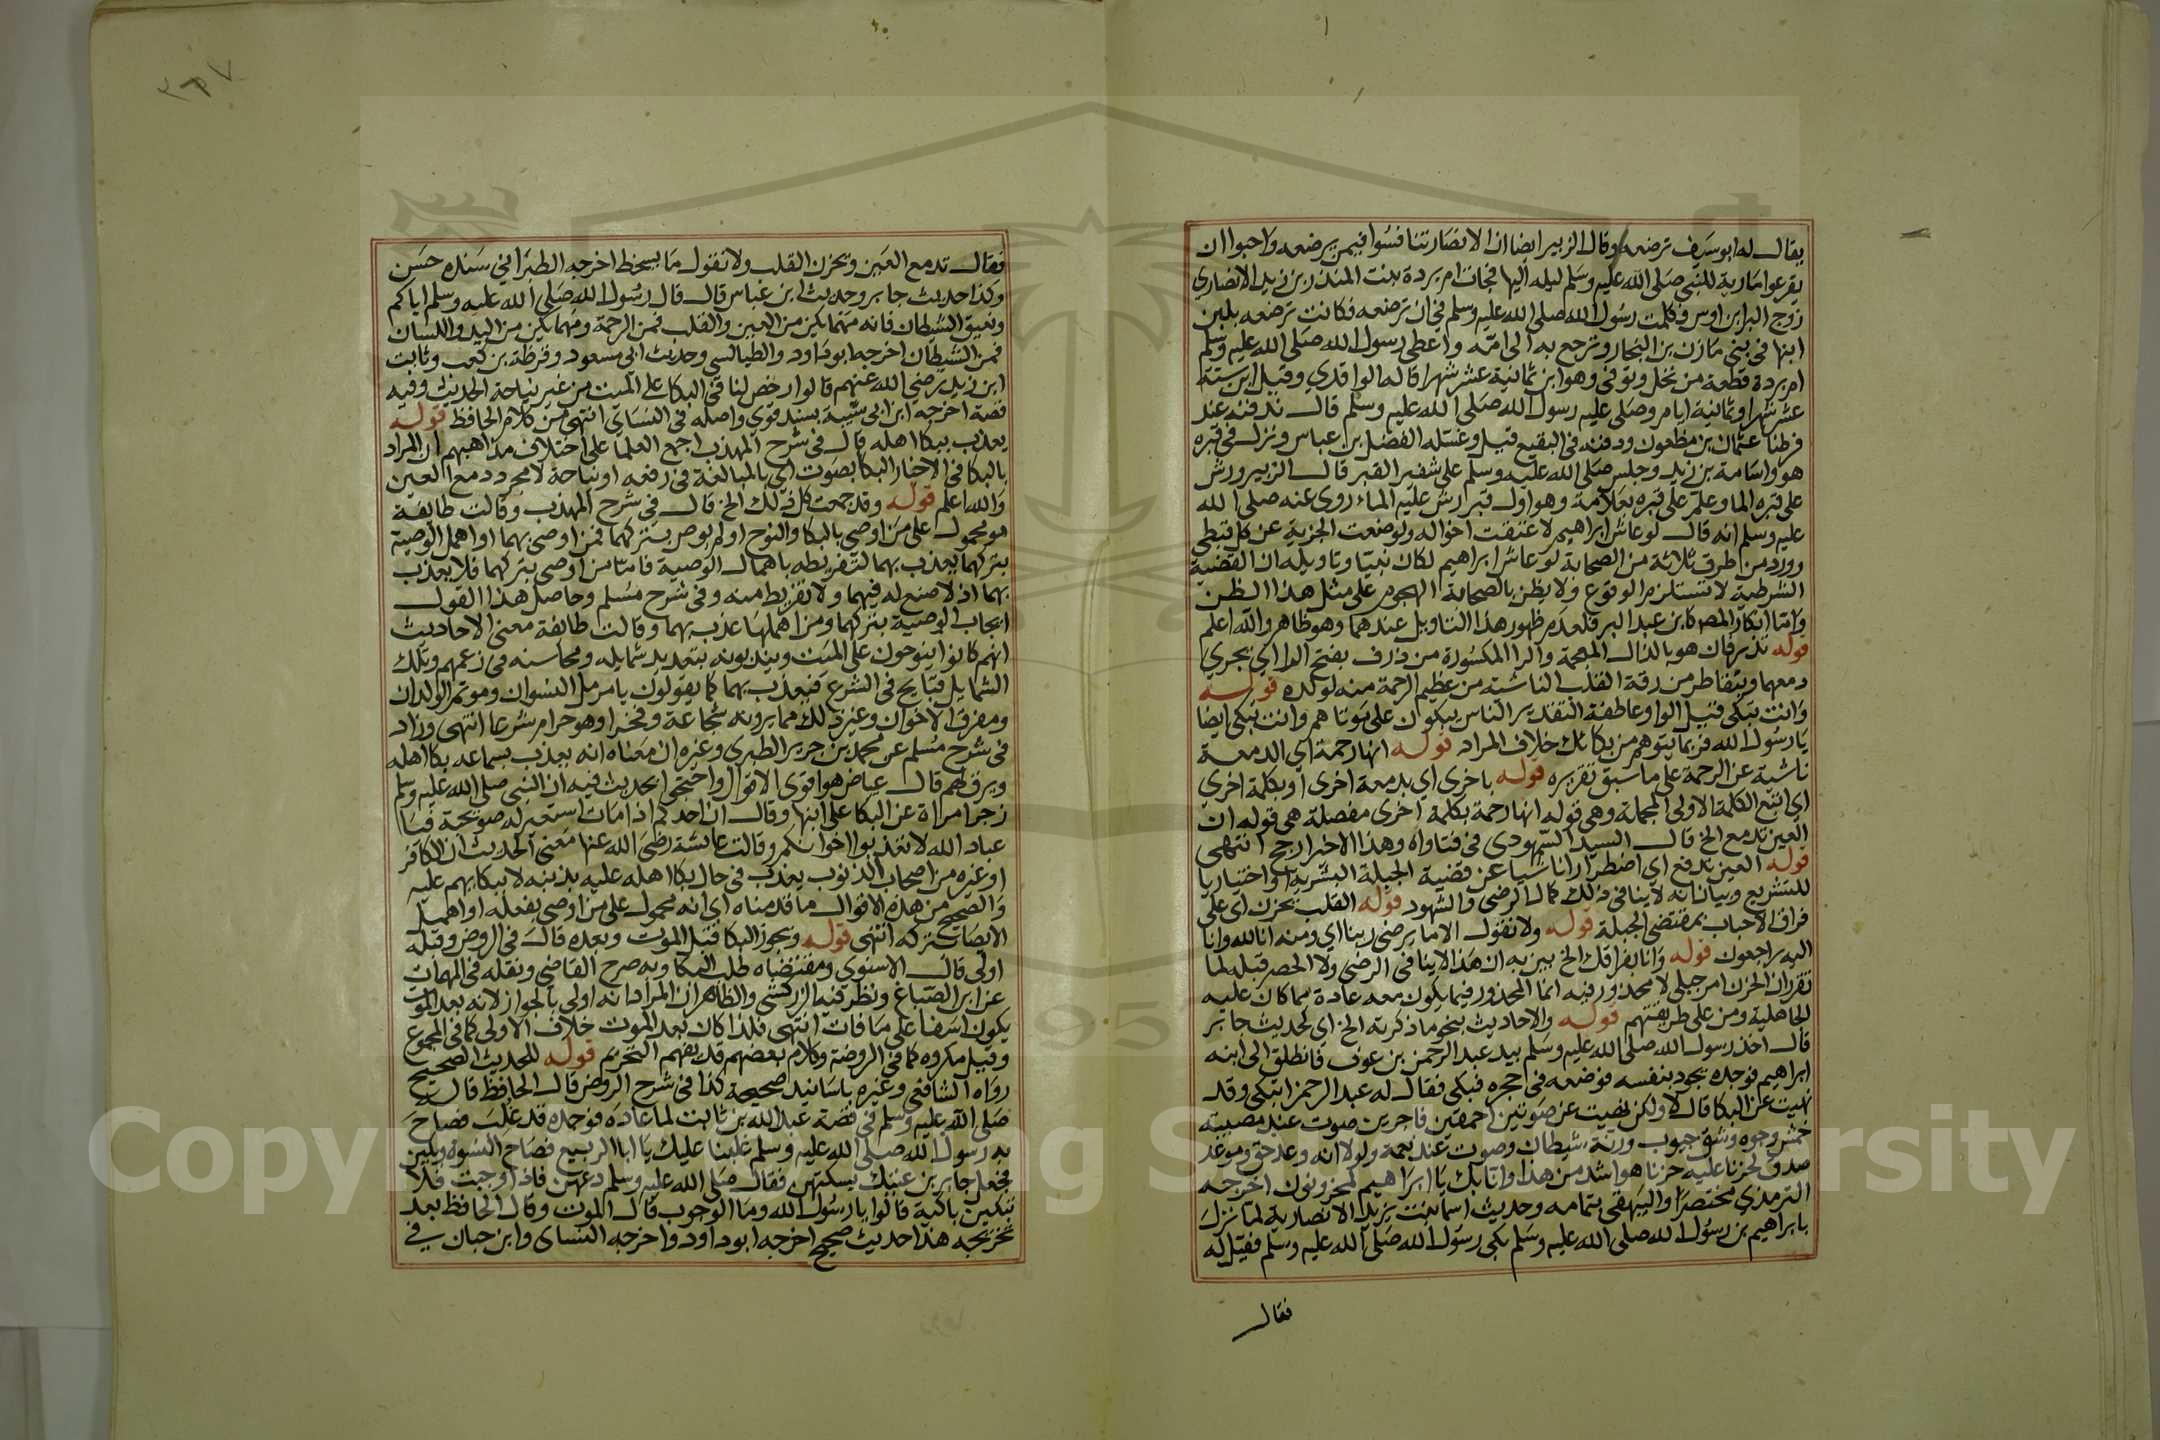 يقال له ابو سيف ترضعه وقال الزبير ايضا ان الانصار تنافسوا فيمن يرضعه واحبوا ان
يفرغوا مارية للنبي صلى الله عليه وسلم ليله اليها فجات ام بردة بنت المنذر بن زيد الانصاري
زوج البرا بن اوس فكلمت رسول الله صلى الله عليه وسلم في ان ترضعه فكانت ترضعه بلبن
ابنها في بني مازن بن النجار وترجع به الى امه واعطى رسول الله صلى الله عليه وسلم
ام بردة قطعة من نخل وتوفي وهو ابن ثمانية عشر شهرا قاله الواقدي وقيل ابن ستة
عشر شهرا وثمانية ايام وصلى عليه رسول الله صلى الله عليه وسلم قال ندفنه عند
فرطنا عثمان بن مظعون ودفنه في البقيع قيل وغسله الفضل بن عباس ونزل في قبره
هو واسامة بن زيد وجلس صلى الله عليه وسلم على شفير القبر قال الزبير ورش
على قبره الما وعلم على قبره بعلامة وهو اول قبر رش عليه الماء روى عنه صلى الله
عليه وسلم انه قال لو عاش ابراهيم لاعتقت اخواله ولوضعت الجزية عن كل قبطي
وورد من طرق ثلاثة من الصحابة لو عاش ابراهيم لكان نبيا وتاويله ان القضية
الشرطية لا تستلزم الوقوع ولا يظن بالصحابة الهجوم على مثل هذا الظن
واما انكار المص كابن عبد البر فلعدم ظهور هذا التاويل عندهما وهو ظاهر والله اعلم
قوله تذرفان هو بالذال المعجمة والرا المكسورة من ذرف بفتح الرا اي يجري
دمعهما ويتقاطر من رقة القلب الناشئة من عظيم الرحمة منه لولده قوله
وانت تبكي قيل الواو عاطفة التقدير الناس يبكون على موتاهم وانت تبكي ايضا
يا رسول الله فربما يتوهم من بكائك خلاف المراد قوله انها رحمة اي الدمعة
ناشية عن الرحمة على ما سبق تقريره قوله باخرى اي بدمعة اخرى او بكلمة اخرى
اي اتبع الكلمة الاولى المجملة وهي قوله انها رحمة بكلمة اخرى مفصلة هي قوله ان
العين تدمع الخ قال السيد السمهودي في فتاواه وهذا الاخير ارجح انتهى
قوله العين تدمع اي اضطرارا ناشيا عن قضية الجبلة البشرية او اختياريا
للتشريع وبيان انه لا ينافي ذلك كمال الرضى والشهود قوله القلب يحزن اي على
فراق الاحباب بمقتضى الجبلة قوله ولا نقول الا ما يرضي ربنا اي ومنه انا لله وانا
اليه راجعون قوله وانا بفراقك الخ بين به ان هذا لا ينافي الرضى ولا الحصر قبله لما
تقرر ان الحزن امر جبلي لا محذور فيه انما المحذور فيما يكون معه عادة مما كان عليه
الجاهلية ومن على طريقتهم قوله والاحاديث بنحو ما ذكرته الخ اي كحديث جابر
قال اخذ رسول الله صلى الله عليه وسلم بيد عبد الرحمن بن عوف فانطلق الى ابنه
ابراهيم فوجده يجود بنفسه فوضعه في حجره فبكى فقال له عبد الرحمن اتبكي وقد
نهيت عن البكا قال لا ولكن نهيت عن صوتين احمقين فاجرين صوت عند مصيبة
خمش وجوه وشق جيوب ورنة شيطان وصوت عند نعمة ولولا انه وعد حق وموعد
صدق لحزنا عليه حزنا هو اشد من هذا وانا بك يا ابراهيم لمحزونون اخرجه
الترمذي مختصرا والبيهقي بتمامه وحديث اسما بنت يزيد الانصارية لما نزل
بابراهيم بن رسول الله صلى الله عليه وسلم بكى رسول الله صلى الله عليه وسلم فقيل له
فقال
فقال تدمع العين ويحزن القلب ولا نقول ما يسخط اخرجه الطبراني سنده حسن
وكذا حديث جابر وحديث ابن عباس قال قال رسول الله صلى الله عليه وسلم اياكم
ونعيق الشيطان فانه مهما يكن من العين والقلب فمن الرحمة ومهما يكن من اليد واللسان
فمن الشيطان اخرجه ابو داود والطيالسي وحديث ابي مسعود وقرظة بن كعب وثابت
ابن زيد رضي الله عنهم قالوا رخص لنا في البكا على الميت من غير نياحة الحديث وفيه
قصة اخرجه ابن ابي شيبة بسند قوي واصله في النسائي انتهى من كلام الحافظ قوله
يعذب ببكا اهله قال في شرح المهذب اجمع العلما على اختلاف مذاهبهم ان المراد
بالبكا في الاخبار البكا بصوت اي بالمبالغة في رفعه او نياحة لا مجرد دمع العين
والله اعلم قوله وقد جمعت كل ذلك الخ قال في شرح المهذب وقالت طائفة
هو محمول على من اوصى بالبكا والنوح او لم يوص بتركهما فمن اوصى بهما او اهمل الوصية
بتركهما يعذب بهما لتفريطه باهمال الوصية فاما من اوصى بتركهما فلا يعذب
بهما اذ لا صنع له فيهما ولا تفريط منه وفي شرح مسلم وحاصل هذا القول
ايجاب الوصية بتركهما ومن اهملها عذب بهما وقالت طائفة معنى الاحاديث
انهم كانوا ينوحون على الميت ويندبونه بتعديد شمايله ومحاسنه في زعمهم وتلك
الشمايل قبايح في الشرع فيعذب بهما كما يقولون يا مرمل النسوان وموتم الولدان
ومفرق الاخوان وغير ذلك مما يرونه شجاعة وفخرا وهو حرام شرعا انتهى وزاد
في شرح مسلم عن محمد بن جرير الطبري وغيره ان معناه انه يعذب بسماعه بكا اهله
ويرق لهم قال عياض هو اقوى الاقوال واحتجوا بحديث فيه ان النبي صلى الله عليه وسلم
زجر امراة عن البكا على ابنها وقال ان احدكم اذا مات استعبر له صويحبه فيا
عباد الله لا تعذبوا اخوانكم وقالت عائشة رضي الله عنها معنى الحديث ان الكافر
او غيره من اصحاب الذنوب يعذب في حال بكا اهله عليه بذنبه لا ببكايهم عليه
والصحيح من هذه الاقوال ما قدمناه اي انه محمول على من اوصى بفعله او اهمل
الايصا بتركه انتهى قوله ويجوز البكا قبل الموت وبعده قال في الروض وقبله
اولى قال الاسنوي ومقتضاه طلب البكا وبه صرح القاضي ونقله في المهمات
عن ابن الصباغ ونظر فيه الزركشي والظاهر ان المراد انه اولى بالجواز لانه بعد الموت
يكون اسفا على ما فات انتهى فلذا كان بعد الموت خلاف الاولى كما في المجموع
وقيل مكروه كما في الروضة وكلام بعضهم قد يفهم التحريم قوله للحديث الصحيح
رواه الشافعي وغيره باسانيد صحيحة كذا في شرح الروض قال الحافظ قال
صلى الله عليه وسلم في قصة عبد الله بن ثابت لما عاده فوجده قد غلب فصاح
به رسول الله صلى الله عليه وسلم غلبنا عليك يا ابا الربيع فصاح النسوة وبكين
فجعل جابر بن عتيك يسكتهن فقال صلى الله عليه وسلم دعهن فاذا وجبت فلا
تبكين باكية قالوا يا رسول الله وما الوجوب قال الموت وقال الحافظ بعد
تخريجه هذا حديث صحيح اخرجه ابو داود واخرجه النسائي وابن حبان في